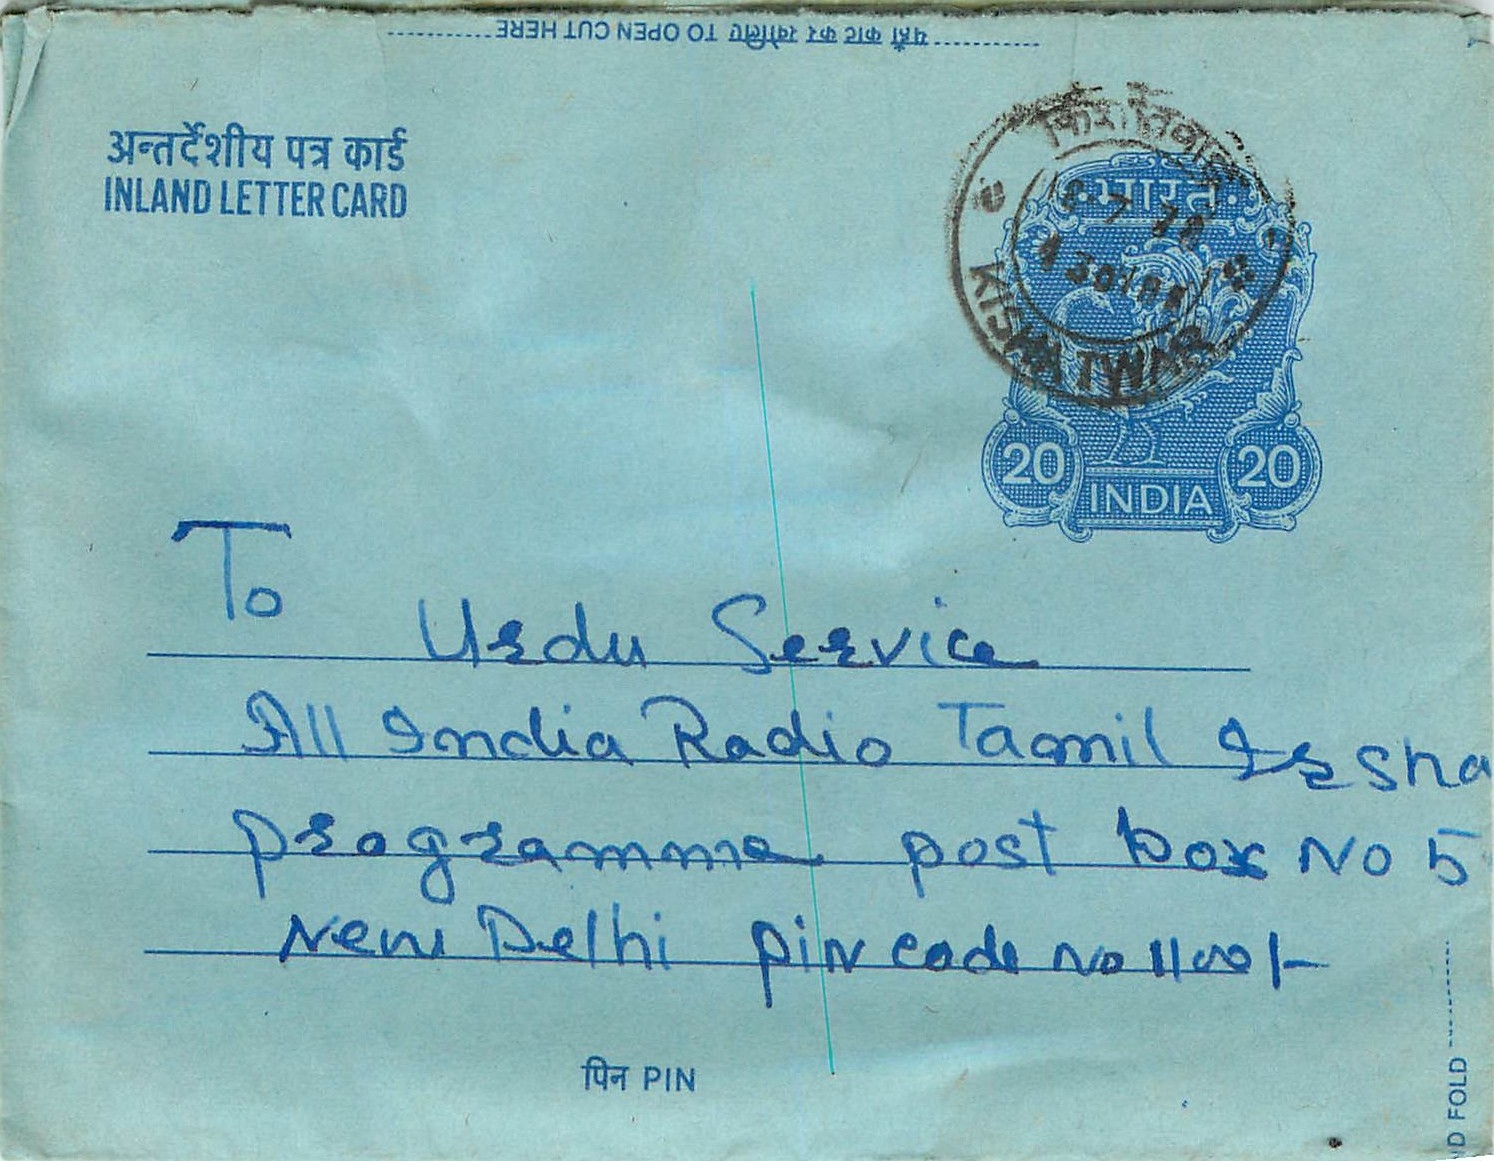 यहाँ काट कर खोलिए TO OPEN CUT HERE
अन्तर्देशीय पत्र कार्ड
INLAND LETTER CARD
भारत
KISHATWAR
20 20
INDIA
To
Urdu Service
All India Radio Tamil Irsha
programme post box No 5
New Delhi pin code No 11001-
पिन PIN
ND FOLD